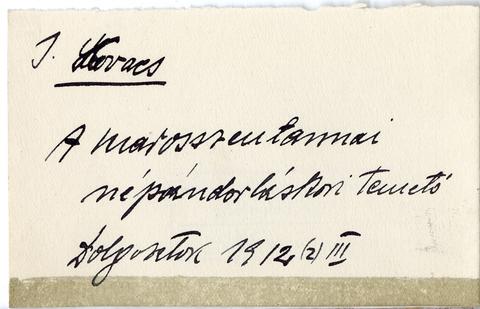 I. Kovacs
A marosszentannai
népvándorláskori temető
Dolgozatok 1912 (2) III